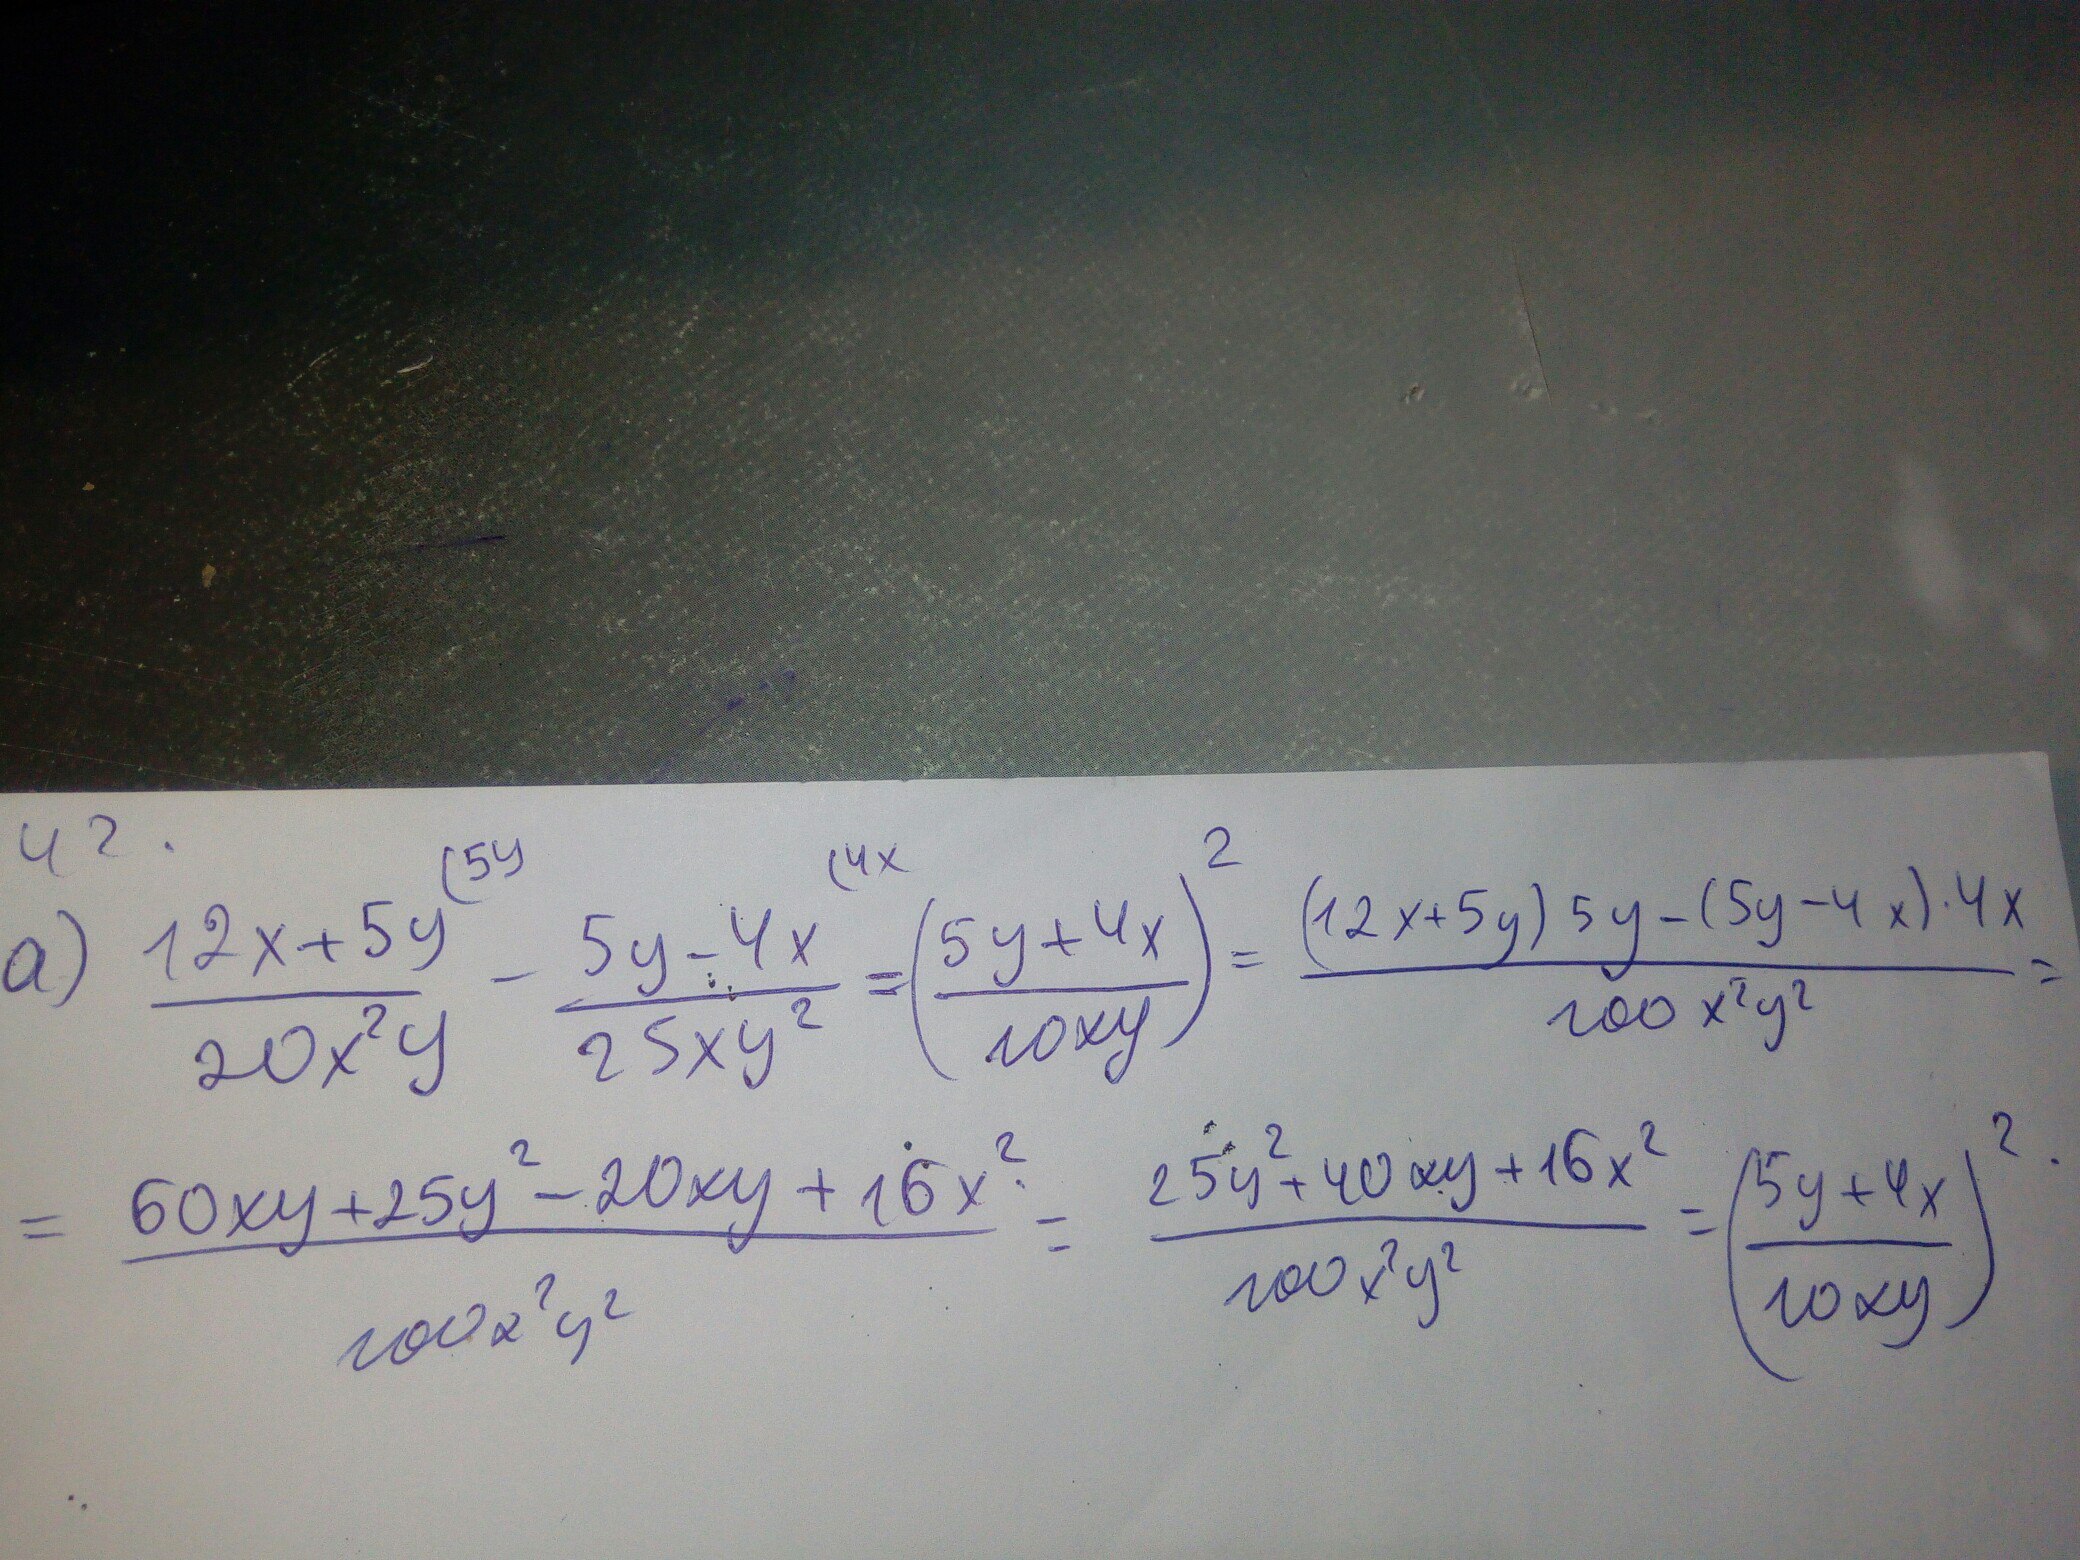 42.
а) (12x+5y)/(20x²y) (5y - (5y-4x)/(25xy²) (4x = ((5y+4x)/(10xy))² = ((12x+5y)5y-(5y-4x)·4x)/(100x²y²) =
= (60xy+25y²-20xy+16x²)/(100x²y²) = (25y²+40xy+16x²)/(100x²y²) = ((5y+4x)/(10xy))².